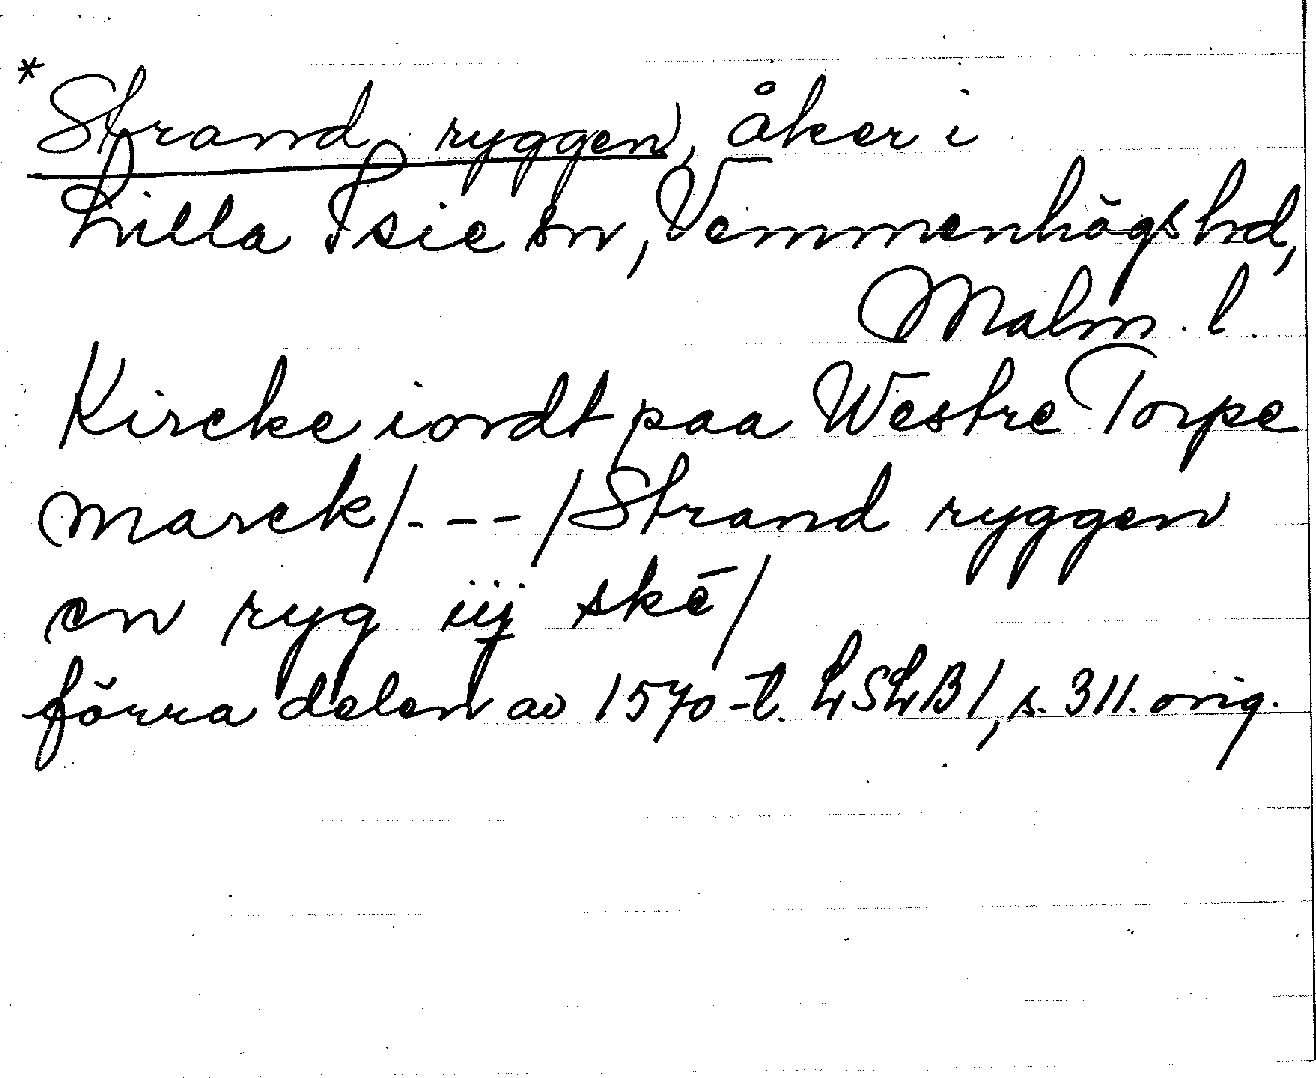 *Strand ryggen, åker i
Lilla Isie sn, Vemmenhögs hd,
Malm. l.
Kircke iordt paa Westre Torpe
marck/---/Strand ryggen
en ryg iij skē/
förra delen av 1570-t. LSLB 1, s. 311. orig.